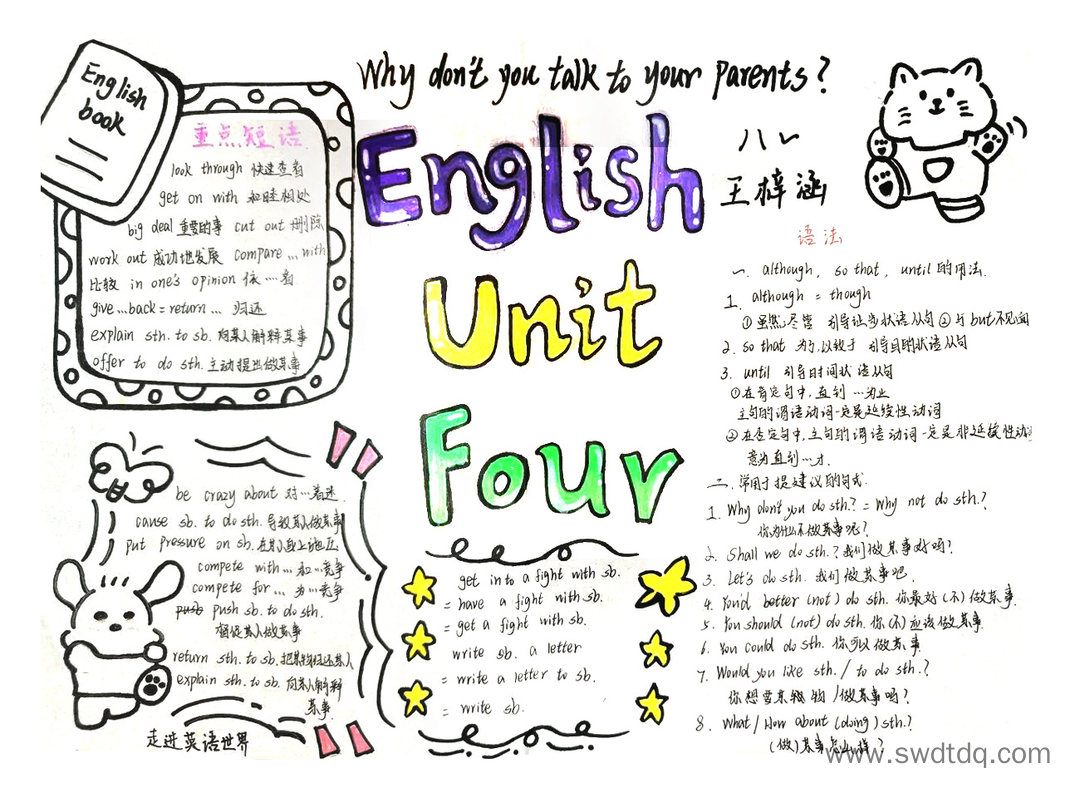 Why don't you talk to your parents?
English
book
重点短语
look through 快速查看
get on with 和睦相处
big deal 重要的事 cut out 删除
work out 成功地发展 compare ... with
比较 in one's opinion 依...看
give...back = return ... 归还
explain sth. to sb. 向某人解释某事
offer to do sth. 主动提出做某事
English
Unit
Four
八
王梓涵
语法
一. although, so that, until 的用法.
1. although = though
①虽然;尽管 引导让步状语从句 ②与but不见面
2. so that 为了,以致于 引导目的状语从句
3. until 引导时间状语从句
①在肯定句中,直到...为止
主句的谓语动词一定是延续性动词
②在否定句中,主句的谓语动词一定是非延续性动词
意为直到...才.
二. 常用于提建议的句式.
1. Why don't you do sth.? = Why not do sth.?
你为什么不做某事呢?
2. Shall we do sth.? 我们做某事好吗?
3. Let's do sth. 我们做某事吧.
4. You'd better (not) do sth. 你最好(不)做某事.
5. You should (not) do sth. 你(不)应该做某事
6. You could do sth. 你可以做某事
7. Would you like sth. / to do sth.?
你想要某物 /做某事吗?
8. What/How about (doing) sth.?
(做)某事怎么样?
be crazy about 对...着迷.
cause sb. to do sth. 导致某人做某事
put pressure on sb. 在某人身上施压
compete with... 和...竞争
compete for... 为...竞争
push sb. to do sth.
督促某人做某事
return sth. to sb. 把某物归还某人
explain sth. to sb. 向某人解释
某事
走进英语世界
get into a fight with sb.
= have a fight with sb.
= get a fight with sb.
write sb. a letter
= write a letter to sb.
= write sb.
www.swdtdq.com